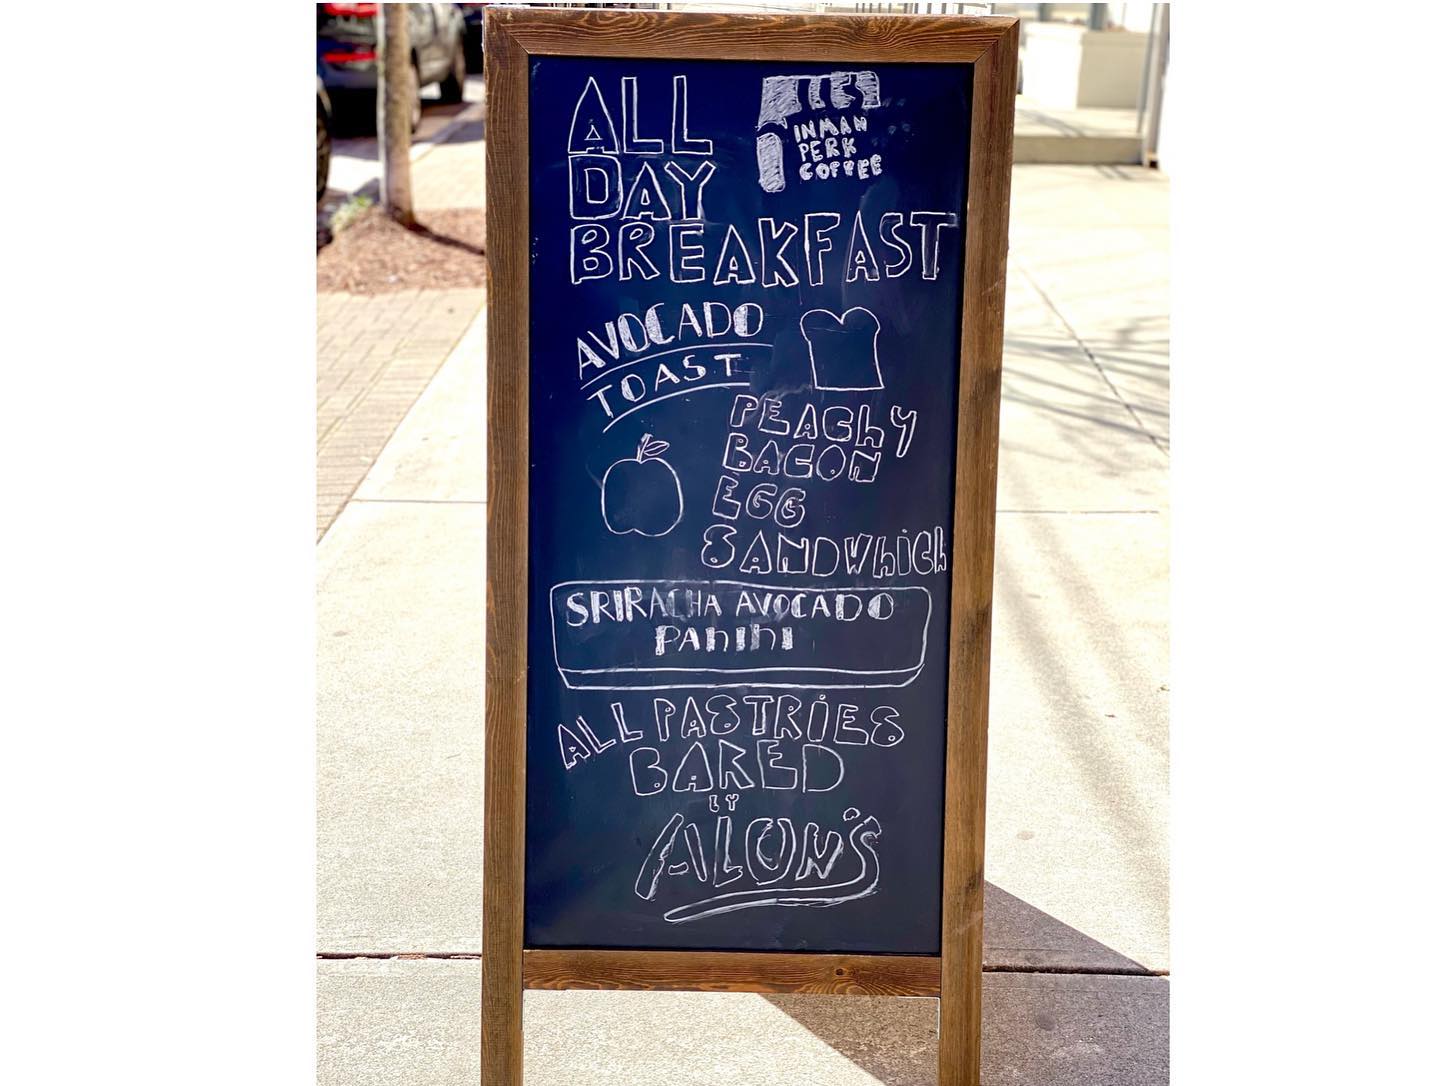 ALL
DAY
BREAKFAST
INMAN
PERK
COFFEE
AVOCADO
TOAST
PEAChY
BACON
EGG
SANDWhiCh
SRIRACHA AVOCADO
PANINI
ALL PASTRiES
BARED
BY
ALON'S